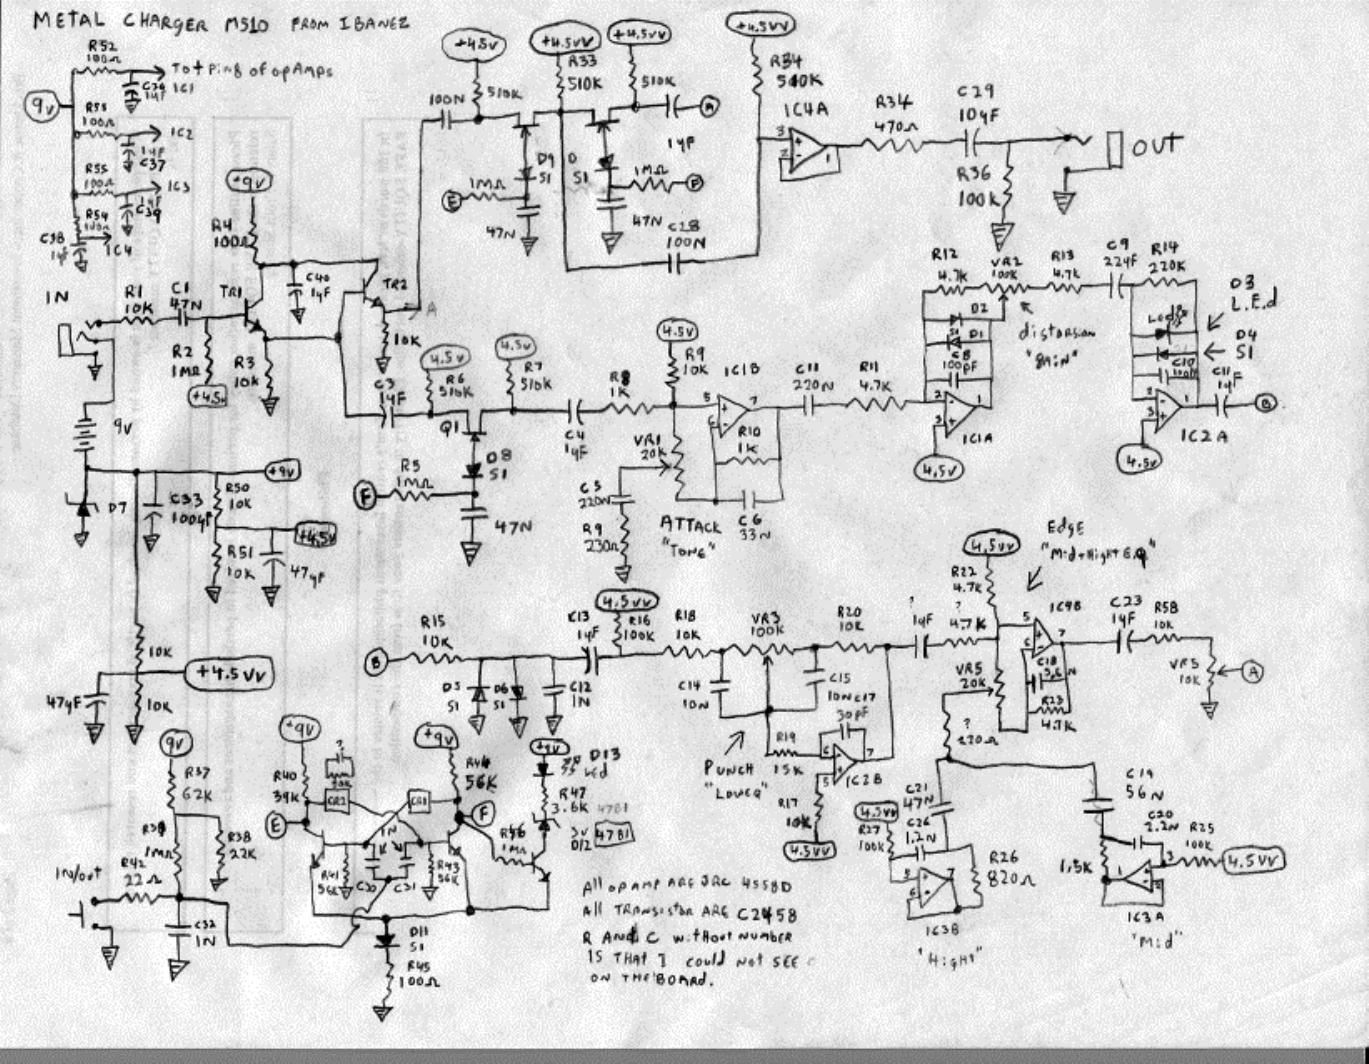 METAL CHARGER MS10 FROM IBANEZ
R52
100Ω
To + Ping of opAmps
IC1
1уF
9v
R53
100Ω
IC2
1уF
C37
R55
100Ω
IC3
1уF
C39
R54
100Ω
IC4
C38
1уF
+9v
R4
100Ω
C40
1уF
TR1
TR2
A
10K
IN
R1
10K
C1
47N
R2
1MΩ
+4.5v
R3
10K
+4.5v
100N
510K
+4.5vv
R33
510K
+4.5vv
510K
1уF
A
D9
S1
D
S1
E
1MΩ
47N
1MΩ
F
47N
C28
100N
+4.5vv
R34
510K
IC4A
3
2
1
R34
470Ω
C29
10уF
R36
100K
OUT
9v
D7
C33
100уF
R50
10K
+9v
+4.5v
R51
10K
47уF
C3
1уF
4.5v
R6
510K
4.5v
R7
510K
Q1
D8
S1
F
R5
1MΩ
47N
C4
1уF
R8
1K
4.5v
R9
10K
VR1
20K
C5
220N
R9
230Ω
ATTACK
"TONE"
IC1B
5
6
7
R10
1K
C6
33N
C11
220N
R11
4.7K
R12
4.7K
VR2
100K
R13
4.7K
D2
D1
C8
100pF
distorsion
"gain"
2
3
1
IC1A
4.5v
C9
22уF
R14
220K
D3
L.E.d
D4
S1
C10
C11
1уF
B
2
3
1
IC2A
4.5v
10K
+4.5vv
47уF
10K
B
R15
10K
D5
S1
D6
S1
C12
1N
C13
1уF
4.5vv
R16
100K
R18
10K
VR3
100K
R20
10K
C14
10N
C15
10N
C17
30pF
PUNCH
"LOWEQ"
R19
15K
6
5
7
IC2B
R17
10K
4.5vv
?
1уF
?
4.7K
4.5vv
R22
4.7K
Edge
"Mid+Hight EQ"
VR5
20K
5
6
7
IC4B
C18
5.6N
R23
4.7K
C23
1уF
R58
10K
VR5
10K
A
?
220Ω
C21
47N
C26
1.2N
4.5vv
R27
100K
5
6
7
R26
820Ω
IC3B
"Hight"
C19
56N
C20
2.2N
R25
100K
4.5vv
1.5K
1
3
2
IC3A
"Mid"
9v
R37
62K
1MΩ
R38
22K
IN/out
R42
22Ω
C32
1N
+9v
R40
39K
E
?
CR2
CR1
1N
R41
56K
C30
C31
R43
56K
+9v
R44
56K
F
1MΩ
+9v
D13
Led
R47
3.6K
D12
4781
4781
D11
S1
R45
100Ω
All opAmp ARE JRC 4558D
All TRANSISTOR ARE C2458
R AND C without NUMBER
IS THAT I could NOT SEE
ON THE BOARD.